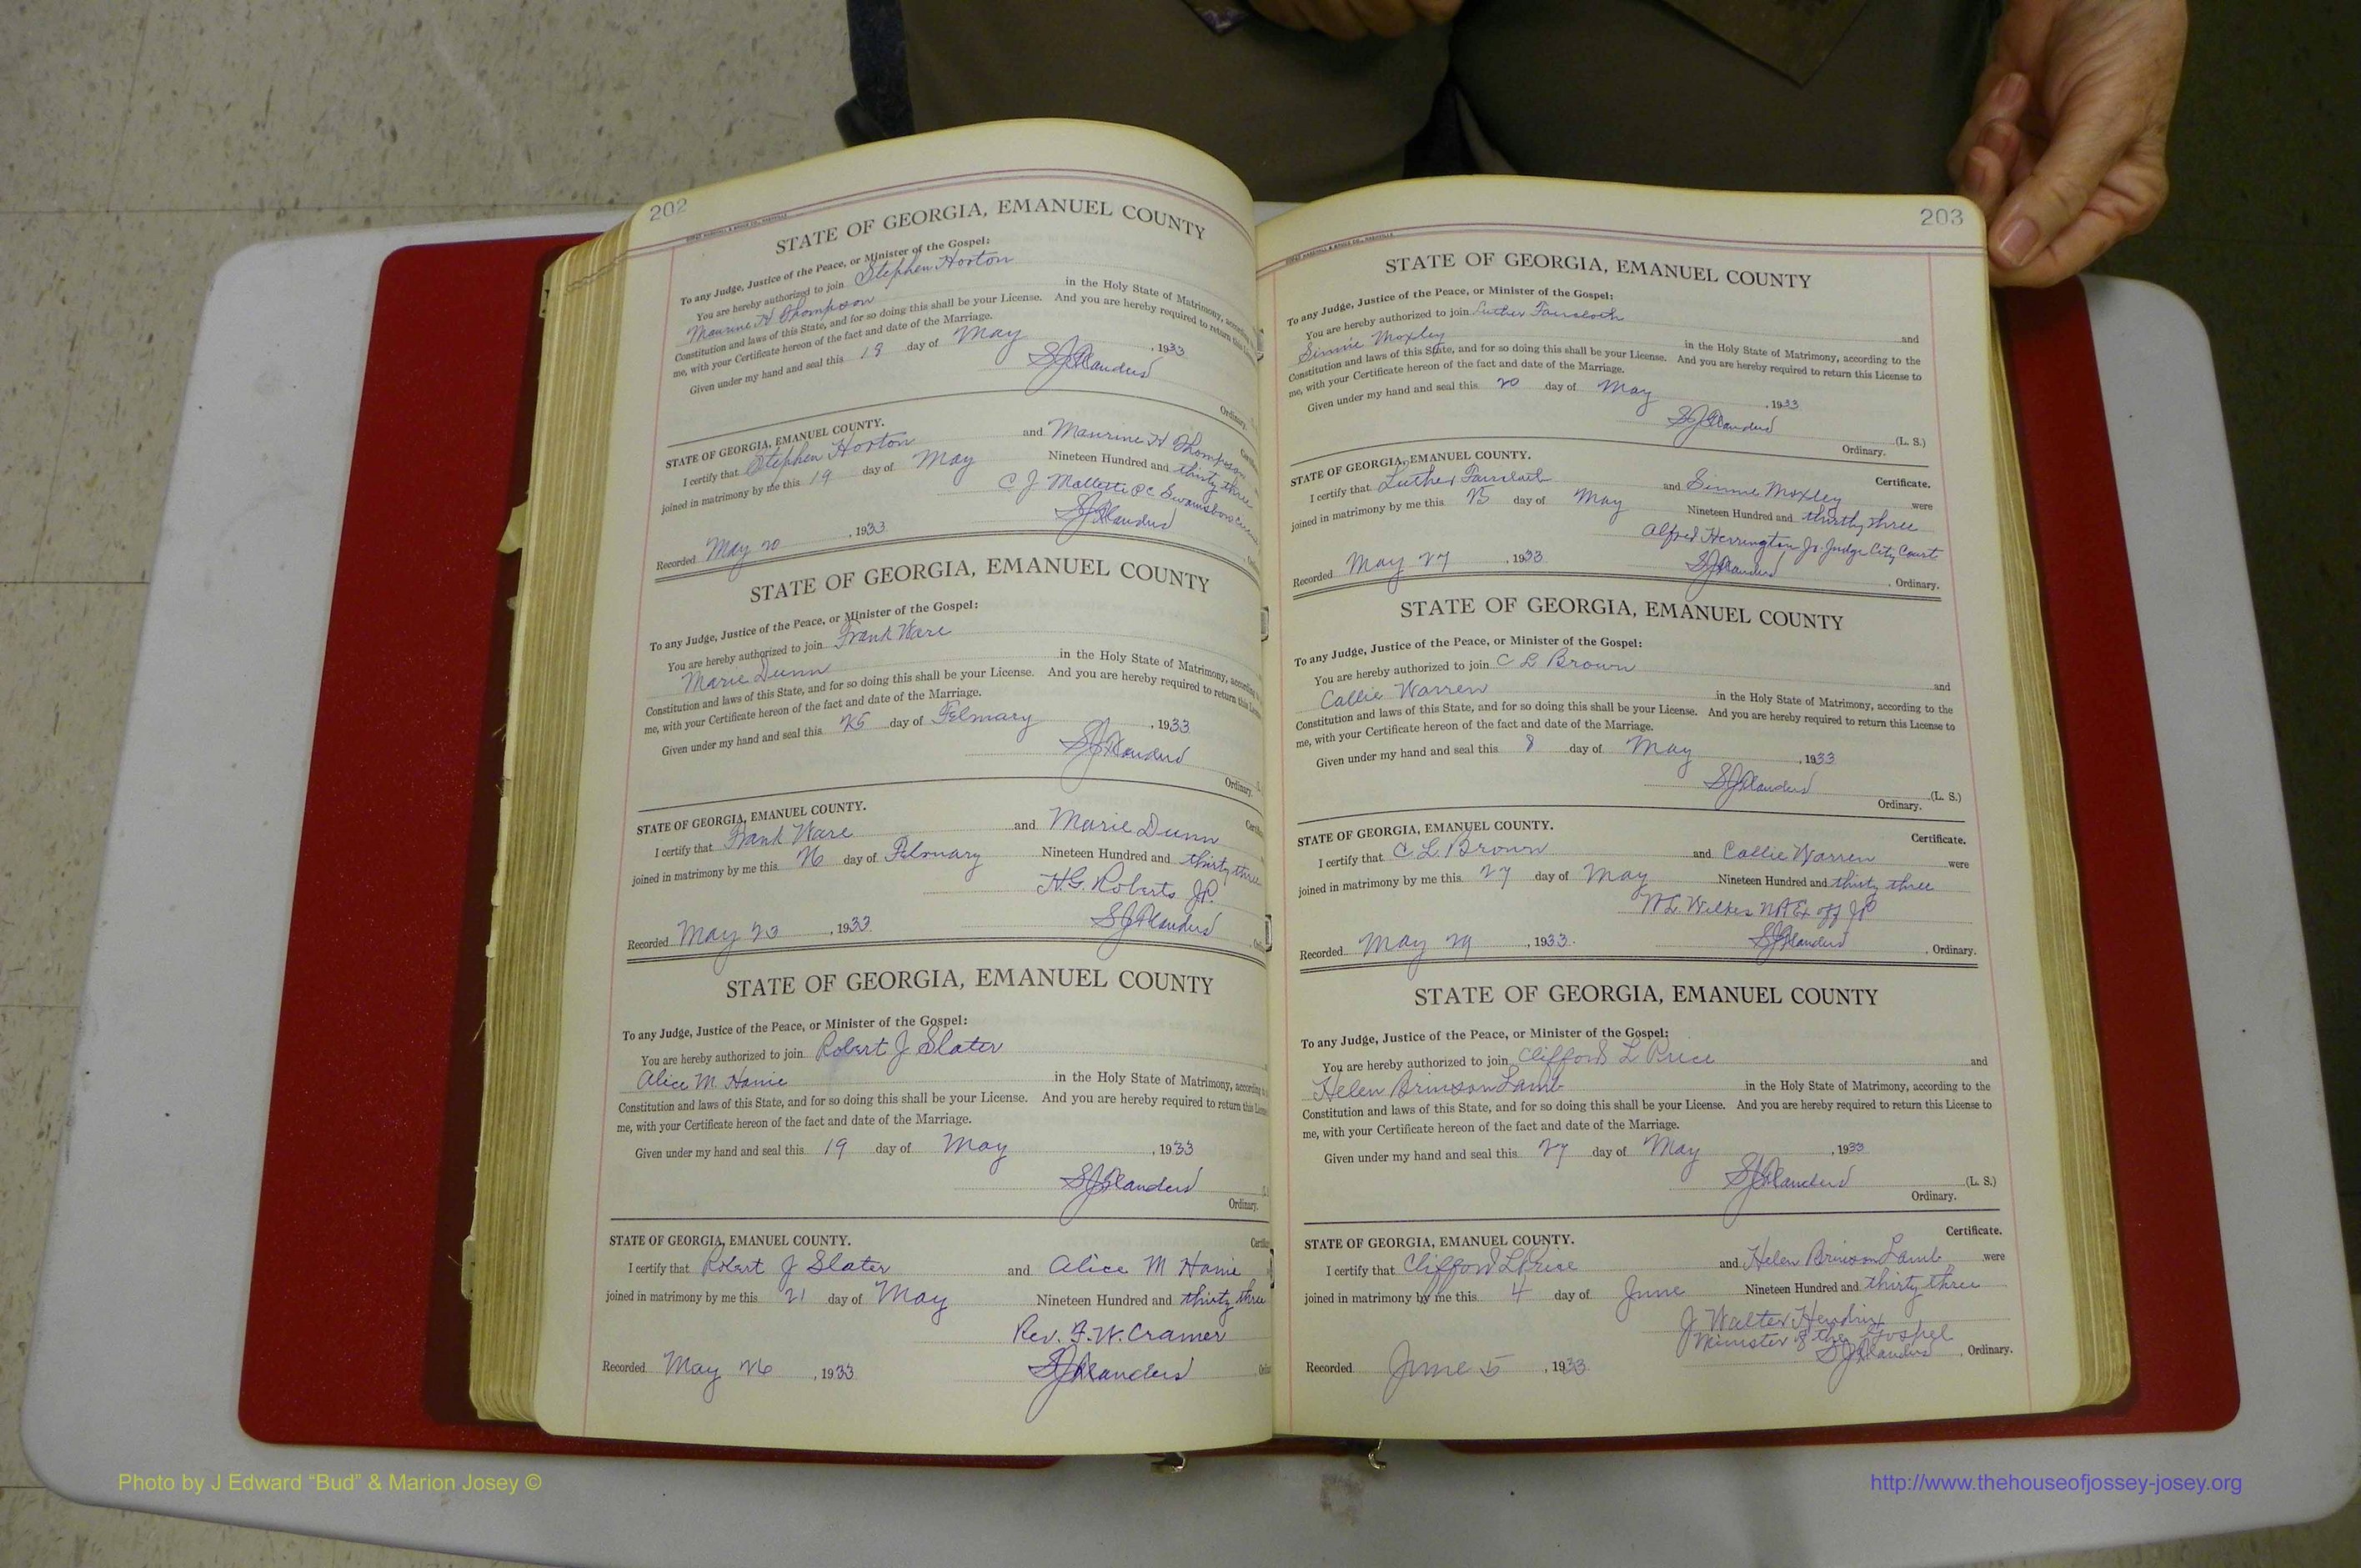 202
STATE OF GEORGIA, EMANUEL COUNTY
To any Judge, Justice of the Peace, or Minister of the Gospel:
You are hereby authorized to join Stephen Horton
Maurine H Thompson in the Holy State of Matrimony, accord
Constitution and laws of this State, and for so doing this shall be your License. And you are hereby required to return this
me, with your Certificate hereon of the fact and date of the Marriage.
Given under my hand and seal this 19 day of May, 1933
SJFlanders
Ordinary.
STATE OF GEORGIA, EMANUEL COUNTY.
I certify that Stephen Horton and Maurine H Thompson
joined in matrimony by me this 19 day of May Nineteen Hundred and thirty three
C J Mallette
SJFlanders
Recorded May 20, 1933
STATE OF GEORGIA, EMANUEL COUNTY
To any Judge, Justice of the Peace, or Minister of the Gospel:
You are hereby authorized to join Frank Ware
Marie Dunn in the Holy State of Matrimony, according
Constitution and laws of this State, and for so doing this shall be your License. And you are hereby required to return this
me, with your Certificate hereon of the fact and date of the Marriage.
Given under my hand and seal this 25 day of February, 1933
SJFlanders
Ordinary.
STATE OF GEORGIA, EMANUEL COUNTY.
I certify that Frank Ware and Marie Dunn
joined in matrimony by me this 26 day of February Nineteen Hundred and thirty three
H.G. Roberts JP.
SJFlanders
Recorded May 23, 1933
STATE OF GEORGIA, EMANUEL COUNTY
To any Judge, Justice of the Peace, or Minister of the Gospel:
You are hereby authorized to join Robert J Slater
Alice M in the Holy State of Matrimony, according
Constitution and laws of this State, and for so doing this shall be your License. And you are hereby required to return this
me, with your Certificate hereon of the fact and date of the Marriage.
Given under my hand and seal this 19 day of May, 1933
SJFlanders
Ordinary.
STATE OF GEORGIA, EMANUEL COUNTY.
I certify that Robert J Slater and Alice M
joined in matrimony by me this 21 day of May Nineteen Hundred and thirty three
Rev. F.W. Cramer
SJFlanders
Recorded May 26, 1933
203
STATE OF GEORGIA, EMANUEL COUNTY
To any Judge, Justice of the Peace, or Minister of the Gospel:
You are hereby authorized to join Luther and
Moxley in the Holy State of Matrimony, according to the
Constitution and laws of this State, and for so doing this shall be your License. And you are hereby required to return this License to
me, with your Certificate hereon of the fact and date of the Marriage.
Given under my hand and seal this 20 day of May, 1933
SJFlanders (L. S.)
Ordinary.
STATE OF GEORGIA, EMANUEL COUNTY. Certificate.
I certify that Luther and Moxley were
joined in matrimony by me this day of May Nineteen Hundred and thirty three
Alfred Herrington Jr. Judge City Court
SJFlanders
Recorded May 27, 1933, Ordinary.
STATE OF GEORGIA, EMANUEL COUNTY
To any Judge, Justice of the Peace, or Minister of the Gospel:
You are hereby authorized to join C L Brown and
Callie Warren in the Holy State of Matrimony, according to the
Constitution and laws of this State, and for so doing this shall be your License. And you are hereby required to return this License to
me, with your Certificate hereon of the fact and date of the Marriage.
Given under my hand and seal this 8 day of May, 1933
SJFlanders (L. S.)
Ordinary.
STATE OF GEORGIA, EMANUEL COUNTY. Certificate.
I certify that C. L. Brown and Callie Warren were
joined in matrimony by me this 27 day of May Nineteen Hundred and thirty three
Wilkes NP Ex off JP
SJFlanders
Recorded May 29, 1933., Ordinary.
STATE OF GEORGIA, EMANUEL COUNTY
To any Judge, Justice of the Peace, or Minister of the Gospel:
You are hereby authorized to join Clifford L Price and
Helen Brinson Lamb in the Holy State of Matrimony, according to the
Constitution and laws of this State, and for so doing this shall be your License. And you are hereby required to return this License to
me, with your Certificate hereon of the fact and date of the Marriage.
Given under my hand and seal this 27 day of May, 1933
SJFlanders (L. S.)
Ordinary.
STATE OF GEORGIA, EMANUEL COUNTY. Certificate.
I certify that Clifford L Price and Helen Brinson Lamb were
joined in matrimony by me this 4 day of June Nineteen Hundred and thirty three
J Walter Hendrix
Minister of the Gospel
SJFlanders
Recorded June 5, 1933, Ordinary.
Photo by J Edward “Bud” & Marion Josey ©
http://www.thehouseofjossey-josey.org